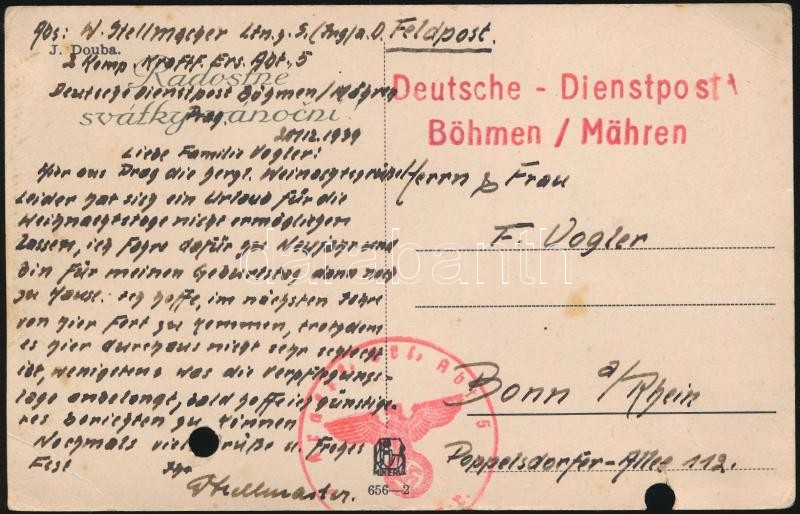 Abs: W. Stellmacher Ltn. z. S. (Ing) a. D. Feldpost.
J. Douba.
2 Komp. Kraftf. Ers. Abt. 5
Radostné
Deutsche Dienstpost Böhmen/Mähren
svátky vánoční
Prag.
20/12.1939
Deutsche - Dienstpost
Böhmen / Mähren
Liebe Familie Vogler!
Hier aus Prag die herzl. Weinachtsgrüße!
Leider hat sich ein Urlaub für die
Weihnachtstage nicht ermöglichen
lassen, ich fahre dafür zu Neujahr und
bin für meinen Geburtstag dann noch
zu Hause. Ich hoffe, im nächsten Jahre
von hier fort zu kommen, trotzdem
es hier durchaus nicht sehr schlecht
ist, wenigstens was die Verpflegungs-
lage anbelangt, bald hoffe ich günstige-
res berichten zu können
Nochmals viele Grüße u. Frohes
Fest Ihr
Stellmacher.
Herrn & Frau
F. Vogler
Bonn a/Rhein
Poppelsdorfer-Allee 112.
Kraftf. Ers. Abt. 5
MINERVA
656—2
darabanth